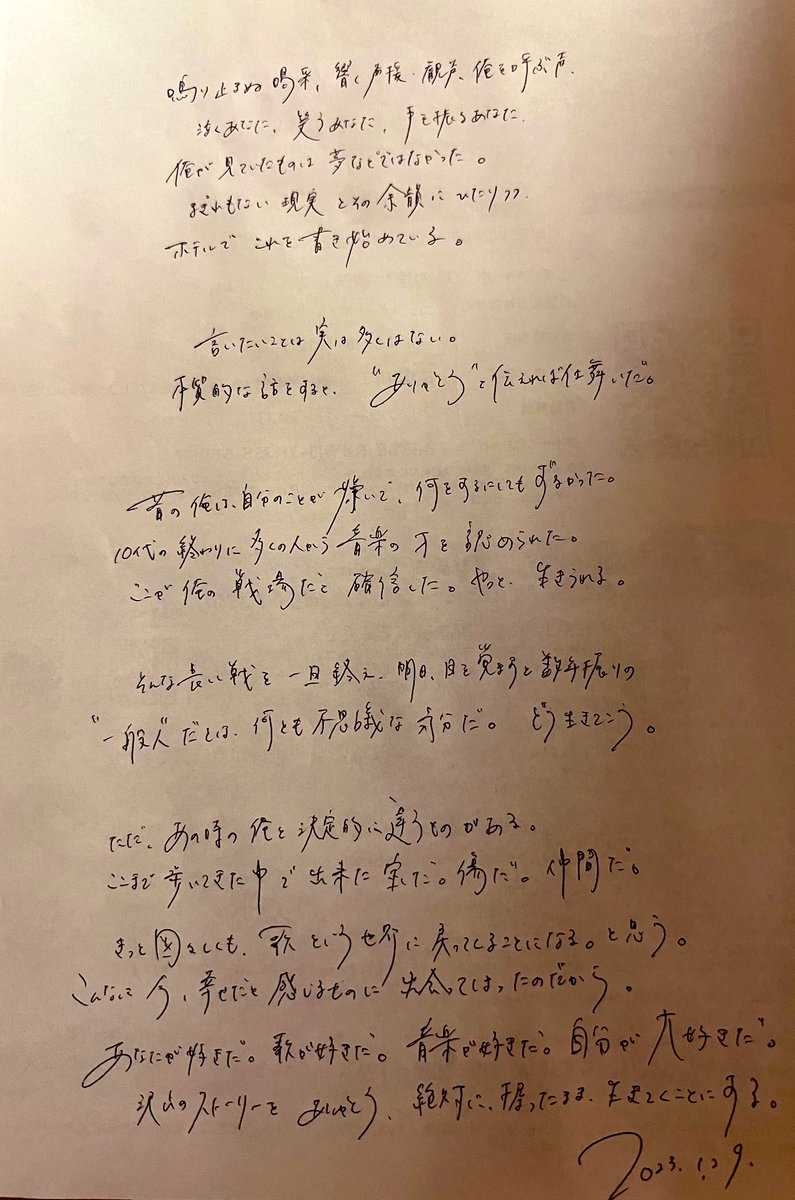 鳴り止まぬ喝采、響く声援・歓声、俺を呼ぶ声、
泣くあなた、笑うあなた、手を振るあなた。
俺が見ていたものは夢などではなかった。
まぎれもない現実とその余韻にひたりつつ、
ホテルでこれを書き始めている。
言いたいことは実は多くはない。
本質的な話をすると、“ありがとう”と伝えれば仕舞いだ。
昔の俺は、自分のことが嫌いで、何をするにしてもずるかった。
10代の終わりに多くの人から音楽の才を認められた。
ここが俺の戦場だと確信した。やっと、生きられる。
そんな長い戦を一旦終え、明日、目を覚ますと数年振りの
“一般人”だとは、何とも不思議な気分だ。どう生きてこう。
ただ、あの時の俺と決定的に違うものがある。
ここまで歩いてきた中で出来た宝だ。傷だ。仲間だ。
きっと図々しくも、歌という世界に戻ってくることになる。と思う。
こんなに今、幸せだと感じるものに出会ってしまったのだから。
あなたが好きだ。歌が好きだ。音楽が好きだ。自分が大好きだ。
沢山のストーリーをありがとう、絶対に、握ったまま、生きてくことにする。
2023.1.29.